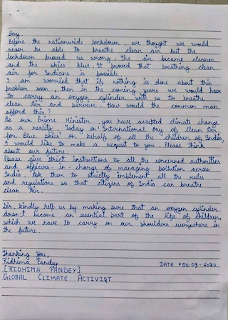 Sir,
Before the nationwide lockdown, we thought we would
never be able to breathe clean air but the
lockdown proved us wrong. The air became cleaner
and the skies blue. It proved that breathing clean
air for Indians is possible.
I am worried that if nothing is done about this
problem soon, then in the coming years we would have
to carry an oxygen cylinder with us to breathe
clean air and survive. How would the common man
afford this?
As a Prime Minister, you have accepted climate change
as a reality. Today on "International Day of Clean Air
for blue skies" on behalf of the children of India
I would like to make a request to you. Please think
about our future.
Please give strict instructions to all the concerned authorities
and officers in-charge of managing pollution across
India. Ask them to strictly implement all the rules
and regulations so that citizens of India can breathe
clean air.
Sir, kindly help us by making sure that an oxygen cylinder
doesn't become an essential part of the life of children,
which we have to carry on our shoulders everywhere in
the future.
Thanking You,
Ridhima Pandey DATE
[RIDHIMA PANDEY]
GLOBAL CLIMATE ACTIVIST